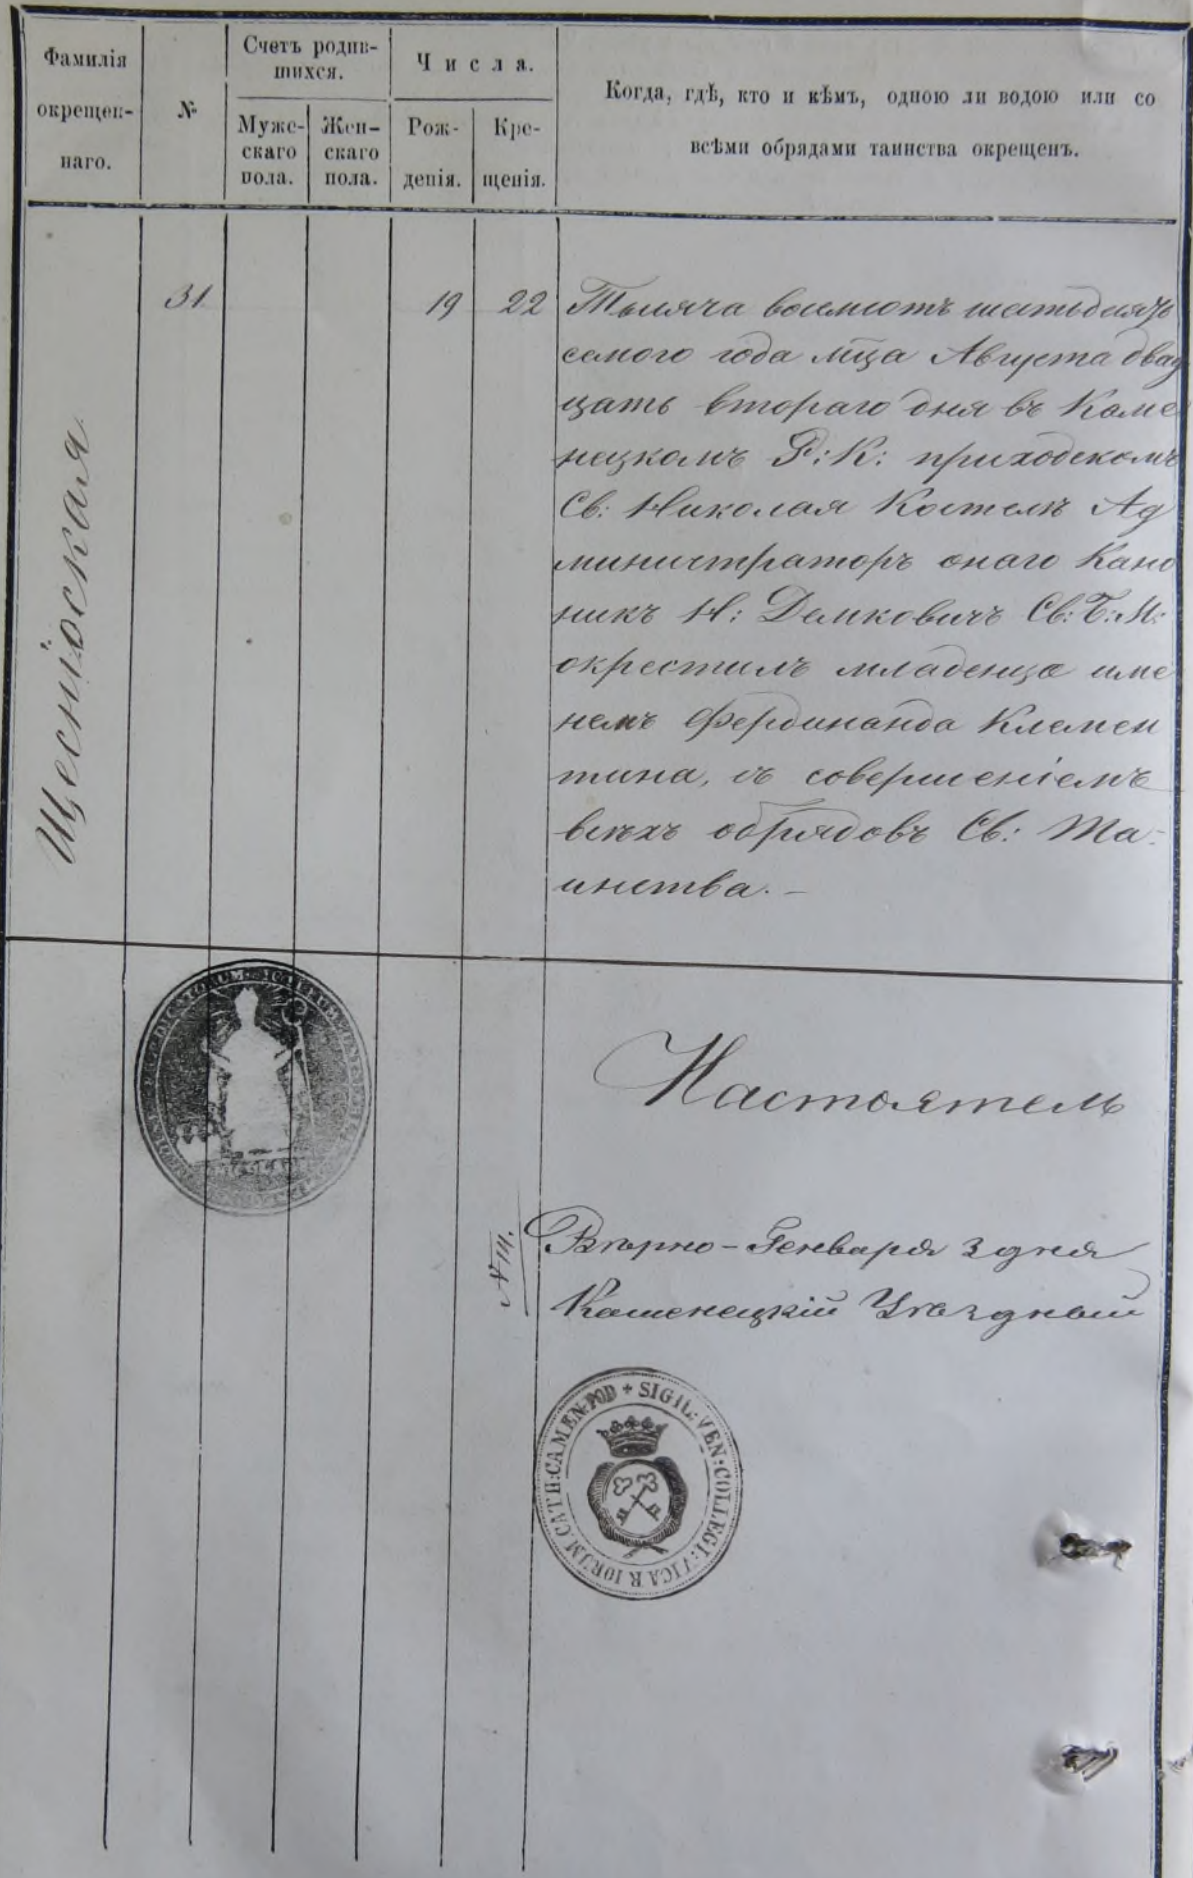 Фамилія
окрещен-
наго.
№
Счетъ родив-
шихся.
Мужс-
скаго
пола.
Жен-
скаго
пола.
Числа.
Рож-
денія.
Кре-
щенія.
Когда, гдѣ, кто и кѣмъ, одною ли водою или со
всѣми обрядами таинства окрещенъ.
Щеснiоская
31
19
22
Тысяча восемсотъ шестьдесятъ
семого года мца Августа двад
цать втораго дня въ Каме
нецкомъ Р: К: приходскомъ
Св: Николая Костелѣ Ад
министраторъ онаго Кано
никъ Н: Демковичъ Св: Б: М:
окрестилъ младенца име
немъ Фердинанда Клемен
тина, съ совершеніемъ
всѣхъ обрядовъ Св: Та-
инства. -
Настоятель
№ III.
Вѣрно - Генваря 3 дня
Каменецкій Уѣздный
SIGIL: VEN: COLLEGI: VICARIORUM CATH: CAMEN: POD +